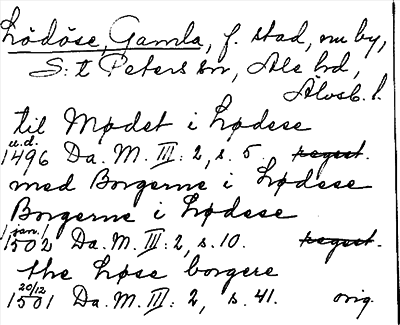 Lödöse, Gamla, f. stad, nu by,
S:t Peters sn, Ale hd,
Älvsb. l.
til Mødet i Lødese
u.d.
1496 Da. M. III: 2, s. 5. regest.
med Borgerne i Lødese
Borgerne i Lødese
1 jan.
1502 Da. M. III: 2, s. 10. regest.
the Løse borgere
20/12
1501 Da. M. III: 2, s. 41. orig.